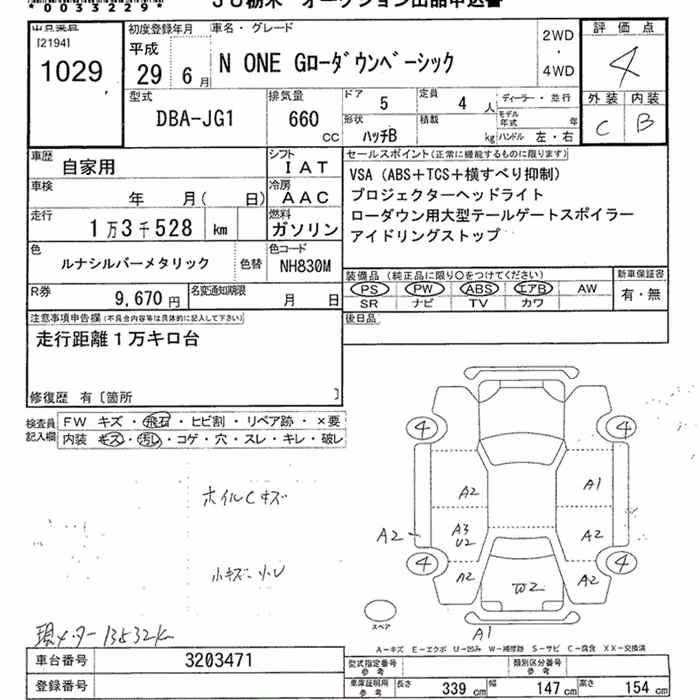 *0033229*
JU栃木 オークション出品申込書
出品票番
[2194]
1029
初度登録年月
平成
29 6月
車名・グレード
N ONE Gローダウンベーシック
2WD
・
4WD
評価点
4
外装 内装
C B
型式
DBA-JG1
排気量
660 CC
ドア 5
定員 4 人
ディーラー・並行
モデル年式 年
形状 ハッチB
積載 kg
ハンドル 左・右
車歴 自家用
シフト IAT
車検 年 月( 日)
冷房 AAC
走行 1万3千528 km
燃料 ガソリン
色 ルナシルバーメタリック
色替
色コード NH830M
R券 9,670円
名変通知期限 月 日
セールスポイント(正常に機能するものに限ります)
VSA (ABS+TCS+横すべり抑制)
プロジェクターヘッドライト
ローダウン用大型テールゲートスポイラー
アイドリングストップ
装備品(純正品に限り○をつけてください)
PS PW ABS エアB AW
SR ナビ TV カワ
新車保証書
有・無
後日品
注意事項申告欄(不具合内容等は具体的に記入して下さい)
走行距離1万キロ台
修復歴 有〔箇所 〕
検査員記入欄
FW キズ・飛石・ヒビ割・リペア跡・×要
内装 キズ・汚レ・コゲ・穴・スレ・キレ・破レ
ホイルCキズ
小キズ・小U
現メーター13532K
4 4
A2 A1
A2 A3 U2 A2
4 4
A2 W2 A2
A1
スペア
A-キズ E-エクボ U-凹み W-補修跡 S-サビ C-腐食 XX-交換済
車台番号 3203471
登録番号
型式指定番号参考
類別区分番号参考
車庫証明用参考
長さ 339 cm 幅 147 cm 高さ 154 cm